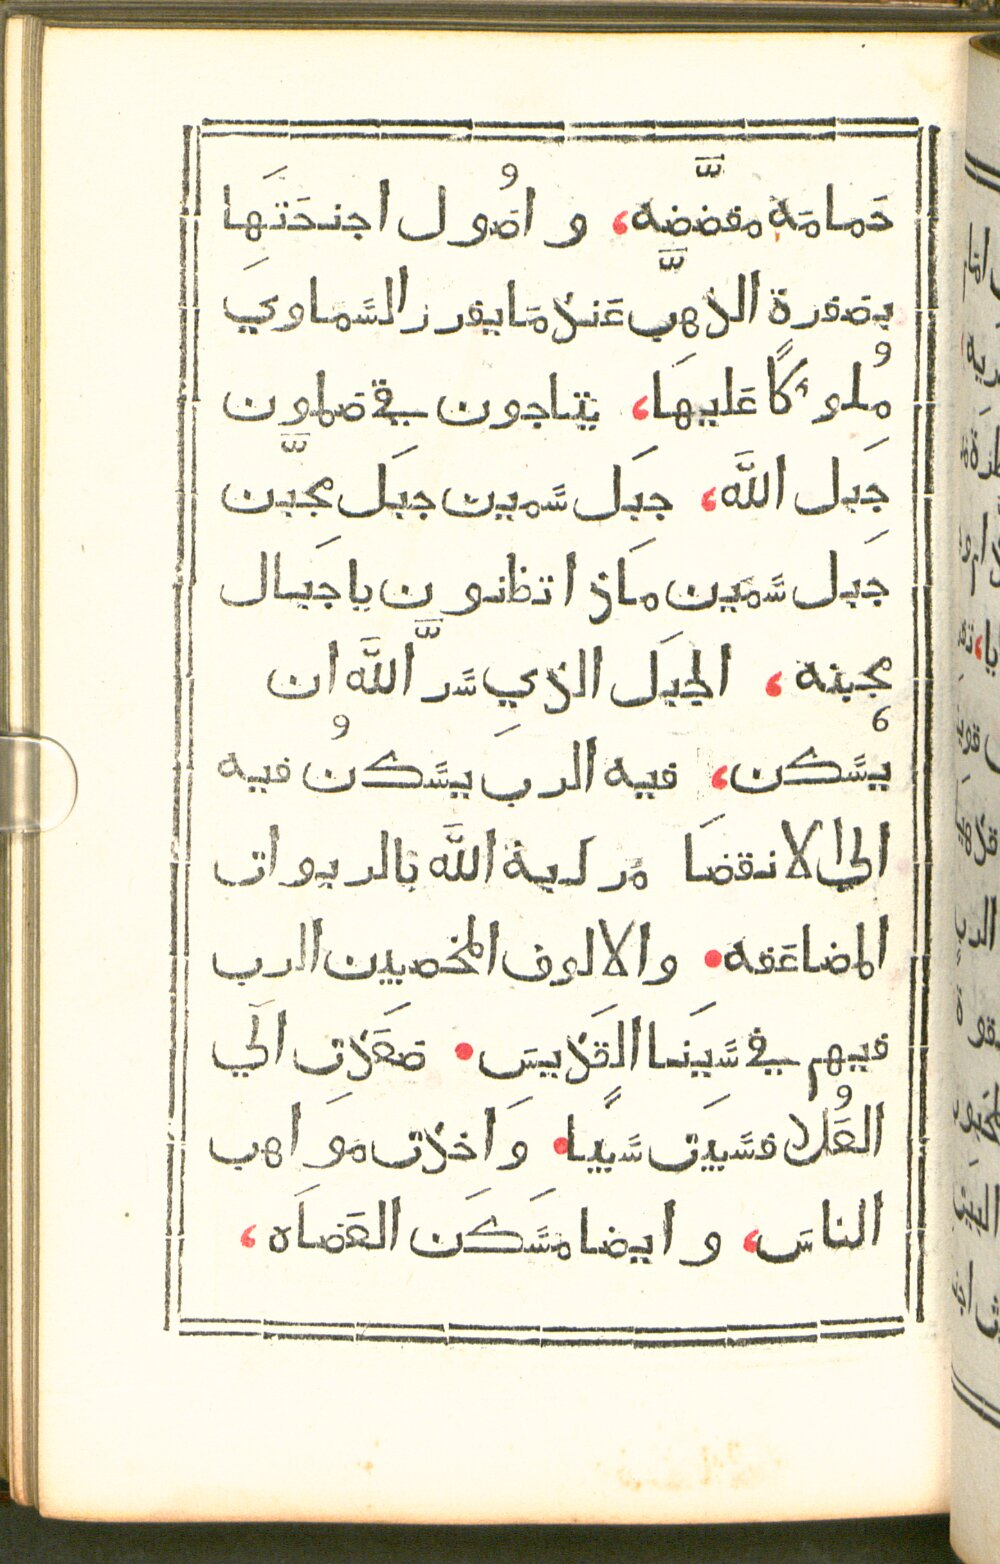 حَمامَة مفضضّه، و اصُول اجنحَتَها
بصفرة الذهبّ عَند مَا يفرز السَماوي
مُلوكاً عَليهَا، يتلجون في صَلمون
جَبل اللَّه، جبَل سَمين جبَل مجبّن
جبل سَمين مَاذا تظنون يا جبَال
مجبنه، الجبَل الذي سَرّ اللَّه ان
يُسَكن، فيه الرب يسَكنُ فيه
الى الانقضَا مَركبة اللَّه بالربوات
المضاعَفه• والالوف المخصبين الرب
فيهم في سَينَا القَديسَ• صَعَدت الَي
العُلا فسَبيَت سَبياً• وَاخذت موَاهب
الناسَ، وايضا مسَكَن العَصَاه،